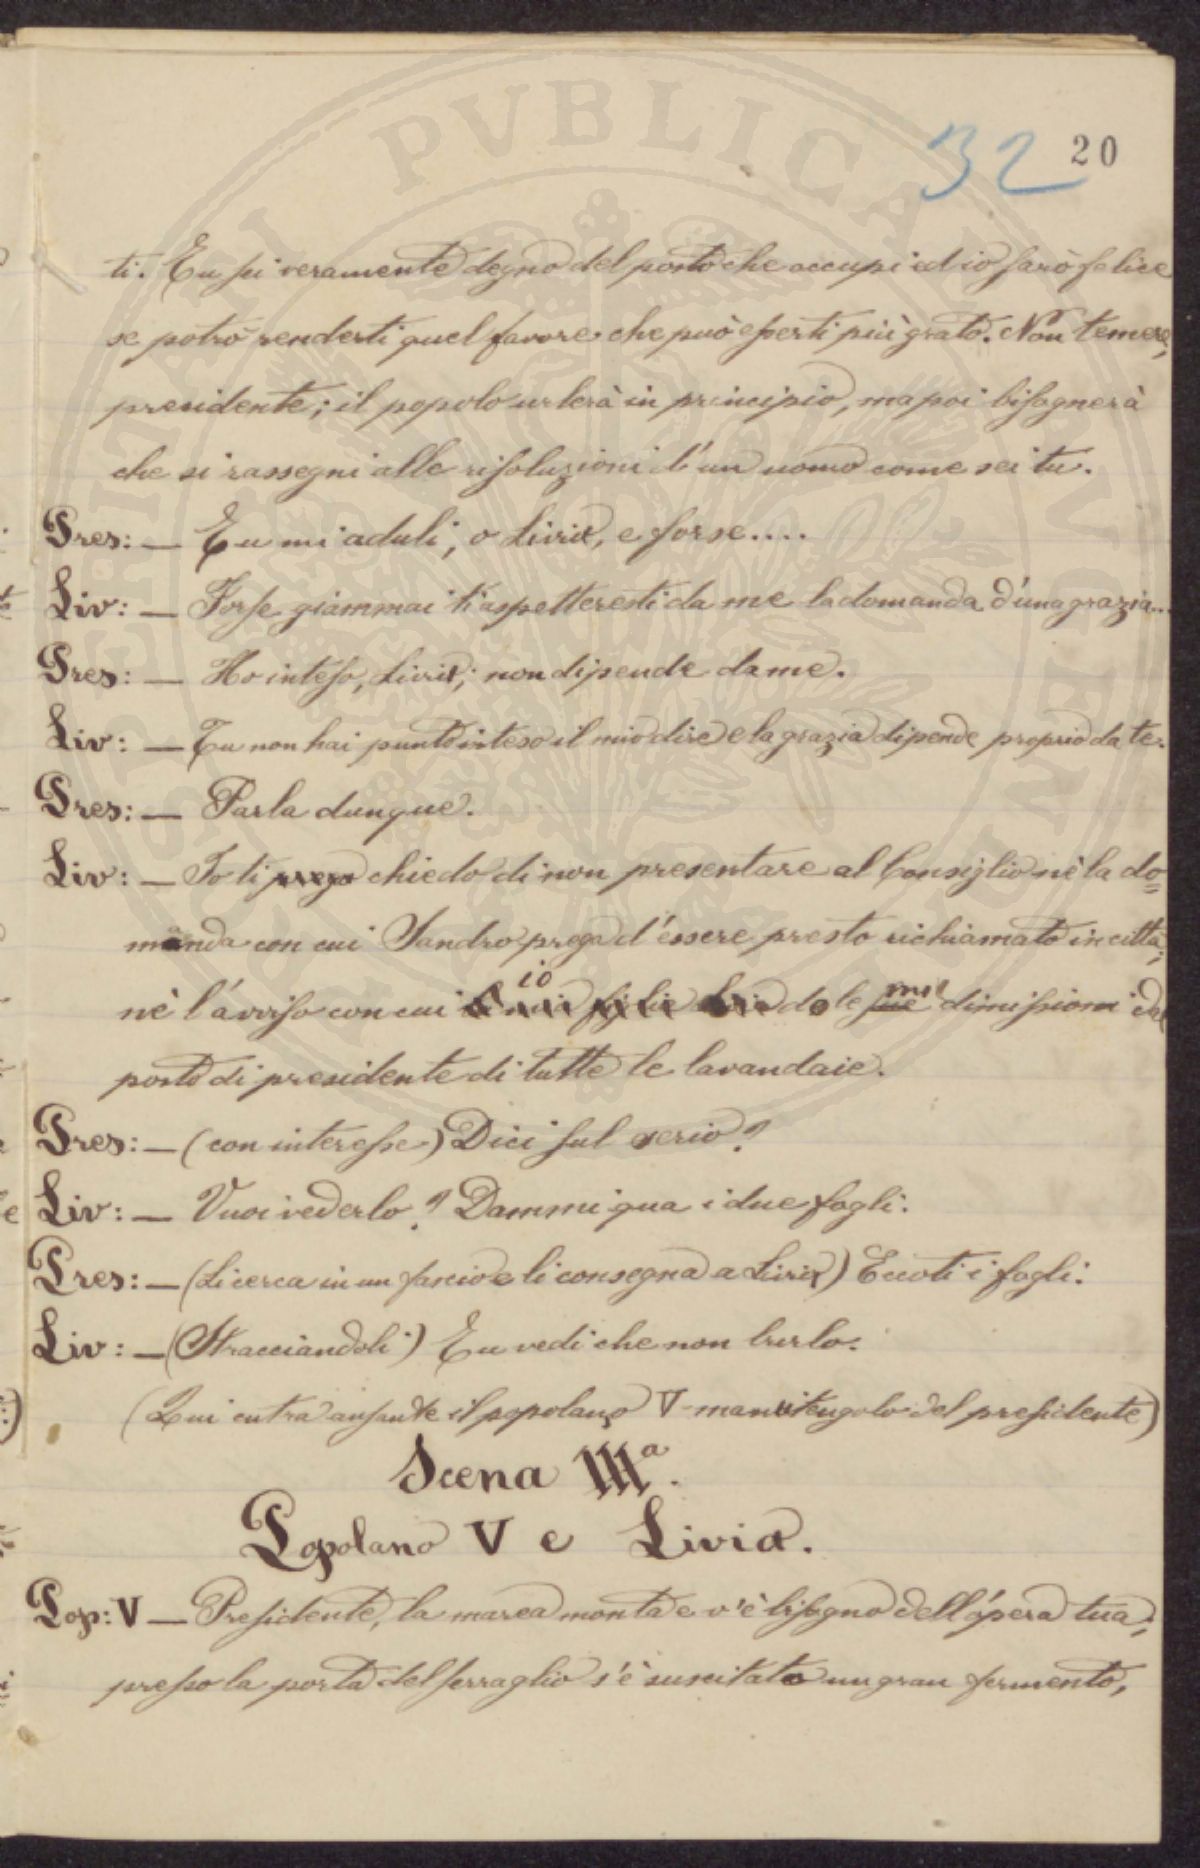 32 20
ti. Tu sei veramente degno del posto che occupi ed io sarò felice
se potrò renderti quel favore che può esserti più grato. Non temere,
presidente; il popolo urlerà in principio, ma poi bisognerà
che si rassegni alle risoluzioni d'un uomo come sei tu.
Pres: — Tu mi aduli, o Livia, e forse....
Liv: — Forse giammai ti aspetteresti da me la domanda d'una grazia...
Pres: — Ho inteso, Livia; non dipende da me.
Liv: — Tu non hai punto inteso il mio dire e la grazia dipende proprio da te.
Pres: — Parla dunque.
Liv: — Io ti prego chiedo di non presentare al Consiglio nè la do=
manda con cui Sandro prega d'essere presto richiamato in città,
io mie
nè l'avviso con cui do le sue dimissioni del
posto di presidente di tutte le lavandaie.
Pres: — (con interesse) Dici sul serio?
Liv: — Vuoi vederlo? Dammi qua i due fogli.
Pres: — (Li cerca in un fascio e li consegna a Livia) Eccoti i fogli.
Liv: — (Stracciandoli) Tu vedi che non burlo.
(Qui entra ansante il popolano V manutengolo del presidente)
Scena IIIª.
Popolano V e Livia.
Pop: V — Presidente, la marea monta e v'è bisogno dell'opera tua;
presso la porta del serraglio s'è suscitato un gran fermento,